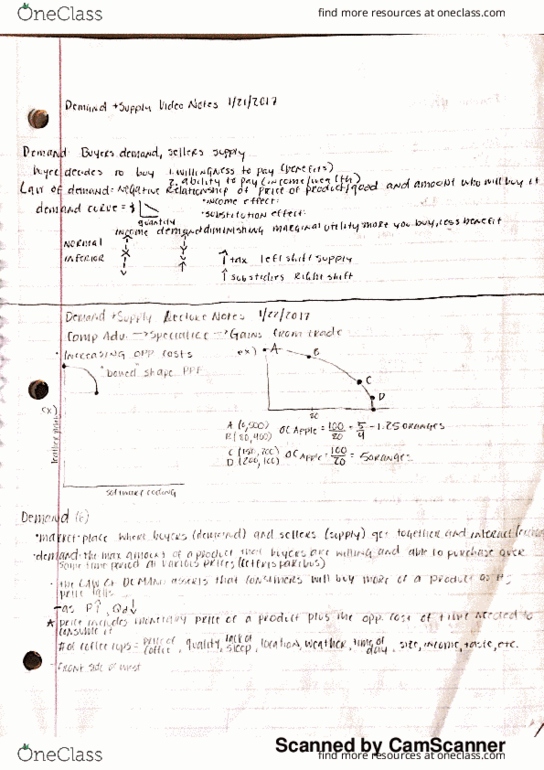 OneClass
find more resources at oneclass.com
Demand + Supply Video Notes 1/21/2017
Demand: Buyers demand, sellers supply
buyer decides to buy 1. willingness to pay (benefits)
2. ability to pay (income/wealth)
Law of demand = negative relationship of price of product/good and amount who will buy it
demand curve = $
quantity
• income effect:
• substitution effect:
income demand diminishing marginal utility more you buy, less benefit
NORMAL
INFERIOR
↑ tax left shift supply
↑ subsidies right shift
Demand + Supply Lecture Notes 1/22/2017
Comp Adv. → Specialize → Gains from trade
• increasing opp costs
"bowed shape PPF
ex)
A
B
C
D
20
ex)
software coding
OC Apple = 100/80 = 5/4 = 1.25 oranges
C (180, 200)
D (200, 100)
OC Apple = 100/20 = 5 oranges
Demand
• market-place where buyers (demand) and sellers (supply) get together and interact
• demand-the max amount of a product that buyers are willing and able to purchase over
some time period at various prices (ceteris paribus)
• the LAW OF DEMAND asserts that consumers will buy more of a product as its
price falls
- as P↑, Qd↓
* price includes monetary price of a product plus the opp. cost of time needed to
consume it
# of coffee cups = price of coffee, quality, lack of sleep, location, weather, time of day, size, income, taste, etc.
Scanned by CamScanner
OneClass
find more resources at oneclass.com